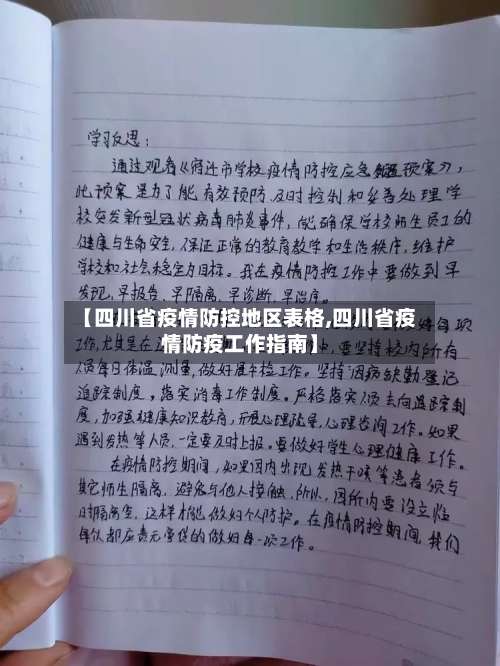 学习反思：
通过观看《宿迁市学校疫情防控应急预案》，
此预案是为了能有效预防、及时控制和妥善处理学
校突发新型冠状病毒肺炎事件，能确保学校师生员工的
健康与生命安全，保证正常的教育教学和生活秩序，维护
学校和社会稳定为目标。我在疫情防控工作中要做到早
发现、早报告、早隔离、早诊断、早治疗。
【四川省疫情防控地区表格,四川省疫
情防疫工作指南】
每项
工作，尤其是在
中，要坚持校内所有
人员每日体温测量，做好晨午检工作。坚持因病缺勤登记
追踪制度，落实消毒工作制度。严格落实人员去向追踪制
度，加强健康知识教育，开展心理疏导，心理咨询工作。如果
遇到发热等人员，一定要及时上报。要做好学生心理健康工作。
在疫情防控期间，如果园内出现发热干咳等患者须与
其它师生隔离，避免与他人接触，所以，园所内要设立临
时隔离室，这样才能做好个人防护。在疫情防控期间，我们
每人都应责无旁贷的做好每一项工作。